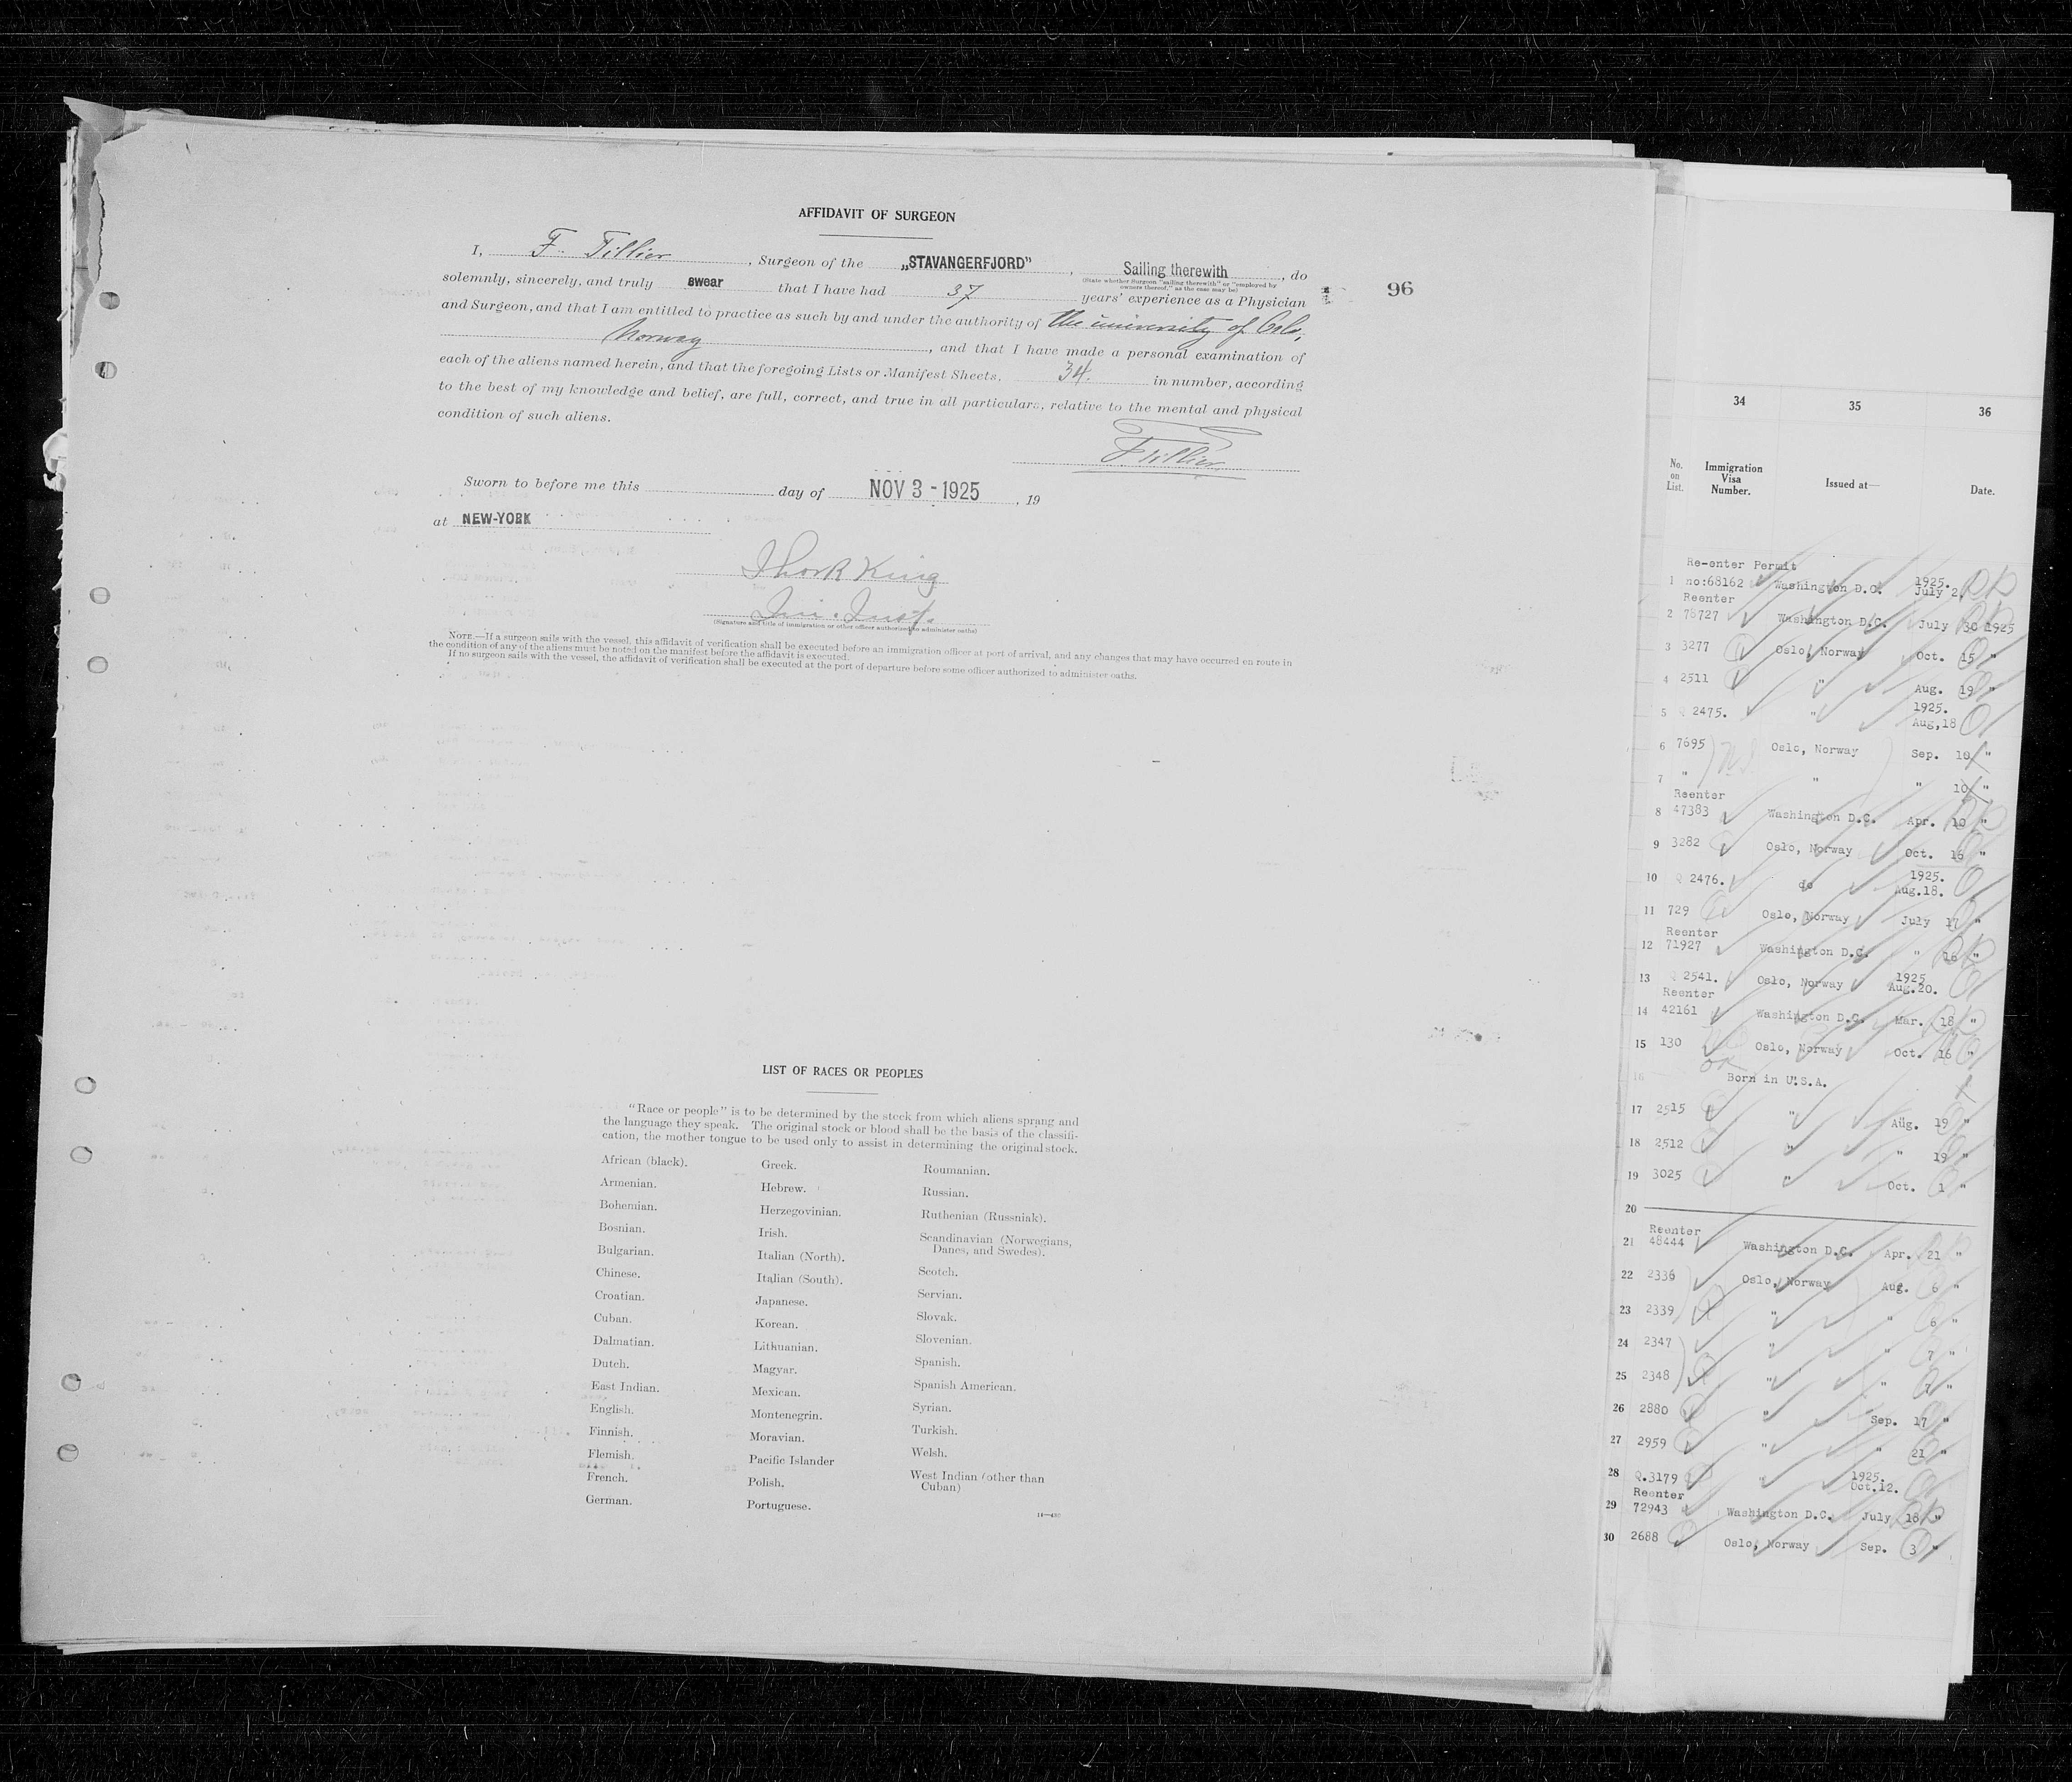 AFFIDAVIT OF SURGEON
I, F. Tillier, Surgeon of the „STAVANGERFJORD”, Sailing therewith, do
(State whether Surgeon "sailing therewith" or "employed by
owners thereof," as the case may be)
96
solemnly, sincerely, and truly swear that I have had 37 years' experience as a Physician
and Surgeon, and that I am entitled to practice as such by and under the authority of the university of Oslo,
Norway, and that I have made a personal examination of
each of the aliens named herein, and that the foregoing Lists or Manifest Sheets, 34. in number, according
to the best of my knowledge and belief, are full, correct, and true in all particulars, relative to the mental and physical
condition of such aliens.
F. Tillier
Sworn to before me this day of NOV 3 - 1925, 19
at NEW-YORK
King
(Signature and title of immigration or other officer authorized to administer oaths)
NOTE.—If a surgeon sails with the vessel, this affidavit of verification shall be executed before an immigration officer at port of arrival, and any changes that may have occurred en route in
the condition of any of the aliens must be noted on the manifest before the affidavit is executed.
If no surgeon sails with the vessel, the affidavit of verification shall be executed at the port of departure before some officer authorized to administer oaths.
LIST OF RACES OR PEOPLES
"Race or people" is to be determined by the stock from which aliens sprang and
the language they speak. The original stock or blood shall be the basis of the classifi-
cation, the mother tongue to be used only to assist in determining the original stock.
African (black).
Armenian.
Bohemian.
Bosnian.
Bulgarian.
Chinese.
Croatian.
Cuban.
Dalmatian.
Dutch.
East Indian.
English.
Finnish.
Flemish.
French.
German.
Greek.
Hebrew.
Herzegovinian.
Irish.
Italian (North).
Italian (South).
Japanese.
Korean.
Lithuanian.
Magyar.
Mexican.
Montenegrin.
Moravian.
Pacific Islander
Polish.
Portuguese.
Roumanian.
Russian.
Ruthenian (Russniak).
Scandinavian (Norwegians,
Danes, and Swedes).
Scotch.
Servian.
Slovak.
Slovenian.
Spanish.
Spanish American.
Syrian.
Turkish.
Welsh.
West Indian (other than
Cuban)
34 35 36
No. on List. Immigration Visa Number. Issued at— Date.
Re-enter Permit 1925.
1 no:68162 Washington D.C. July 2,
Reenter
2 78727 Washington D.C. July 30 1925
3 3277 Oslo, Norway Oct. 15 "
4 2511 " Aug. 19 "
1925.
5 Q 2475. " Aug,18
6 7695 Oslo, Norway Sep. 10 "
7 " " " 10 "
Reenter
8 47383 Washington D.C. Apr. 10 "
9 3282 Oslo, Norway Oct. 16 "
1925.
10 Q 2476. do Aug.18.
11 729 Oslo, Norway July 17 "
Reenter
12 71927 Washington D.C. " 16 "
1925
13 Q 2541. Oslo, Norway Aug.20.
Reenter
14 42161 Washington D.C. Mar. 18 "
15 130 Oslo, Norway Oct. 16 "
16 OK Born in U.S.A.
17 2515 " Aug. 19 "
18 2512 " " 19 "
19 3025 " Oct. 1 "
20
Reenter
21 48444 Washington D.C. Apr. 21 "
22 2336 Oslo, Norway Aug. 6 "
23 2339 " " 6 "
24 2347 " " 7 "
25 2348 " " 7 "
26 2880 " Sep. 17 "
27 2959 " " 21 "
1925.
28 Q.3179 " Oct.12.
Reenter
29 72943 Washington D.C. July 18 "
30 2688 Oslo, Norway Sep. 3 "